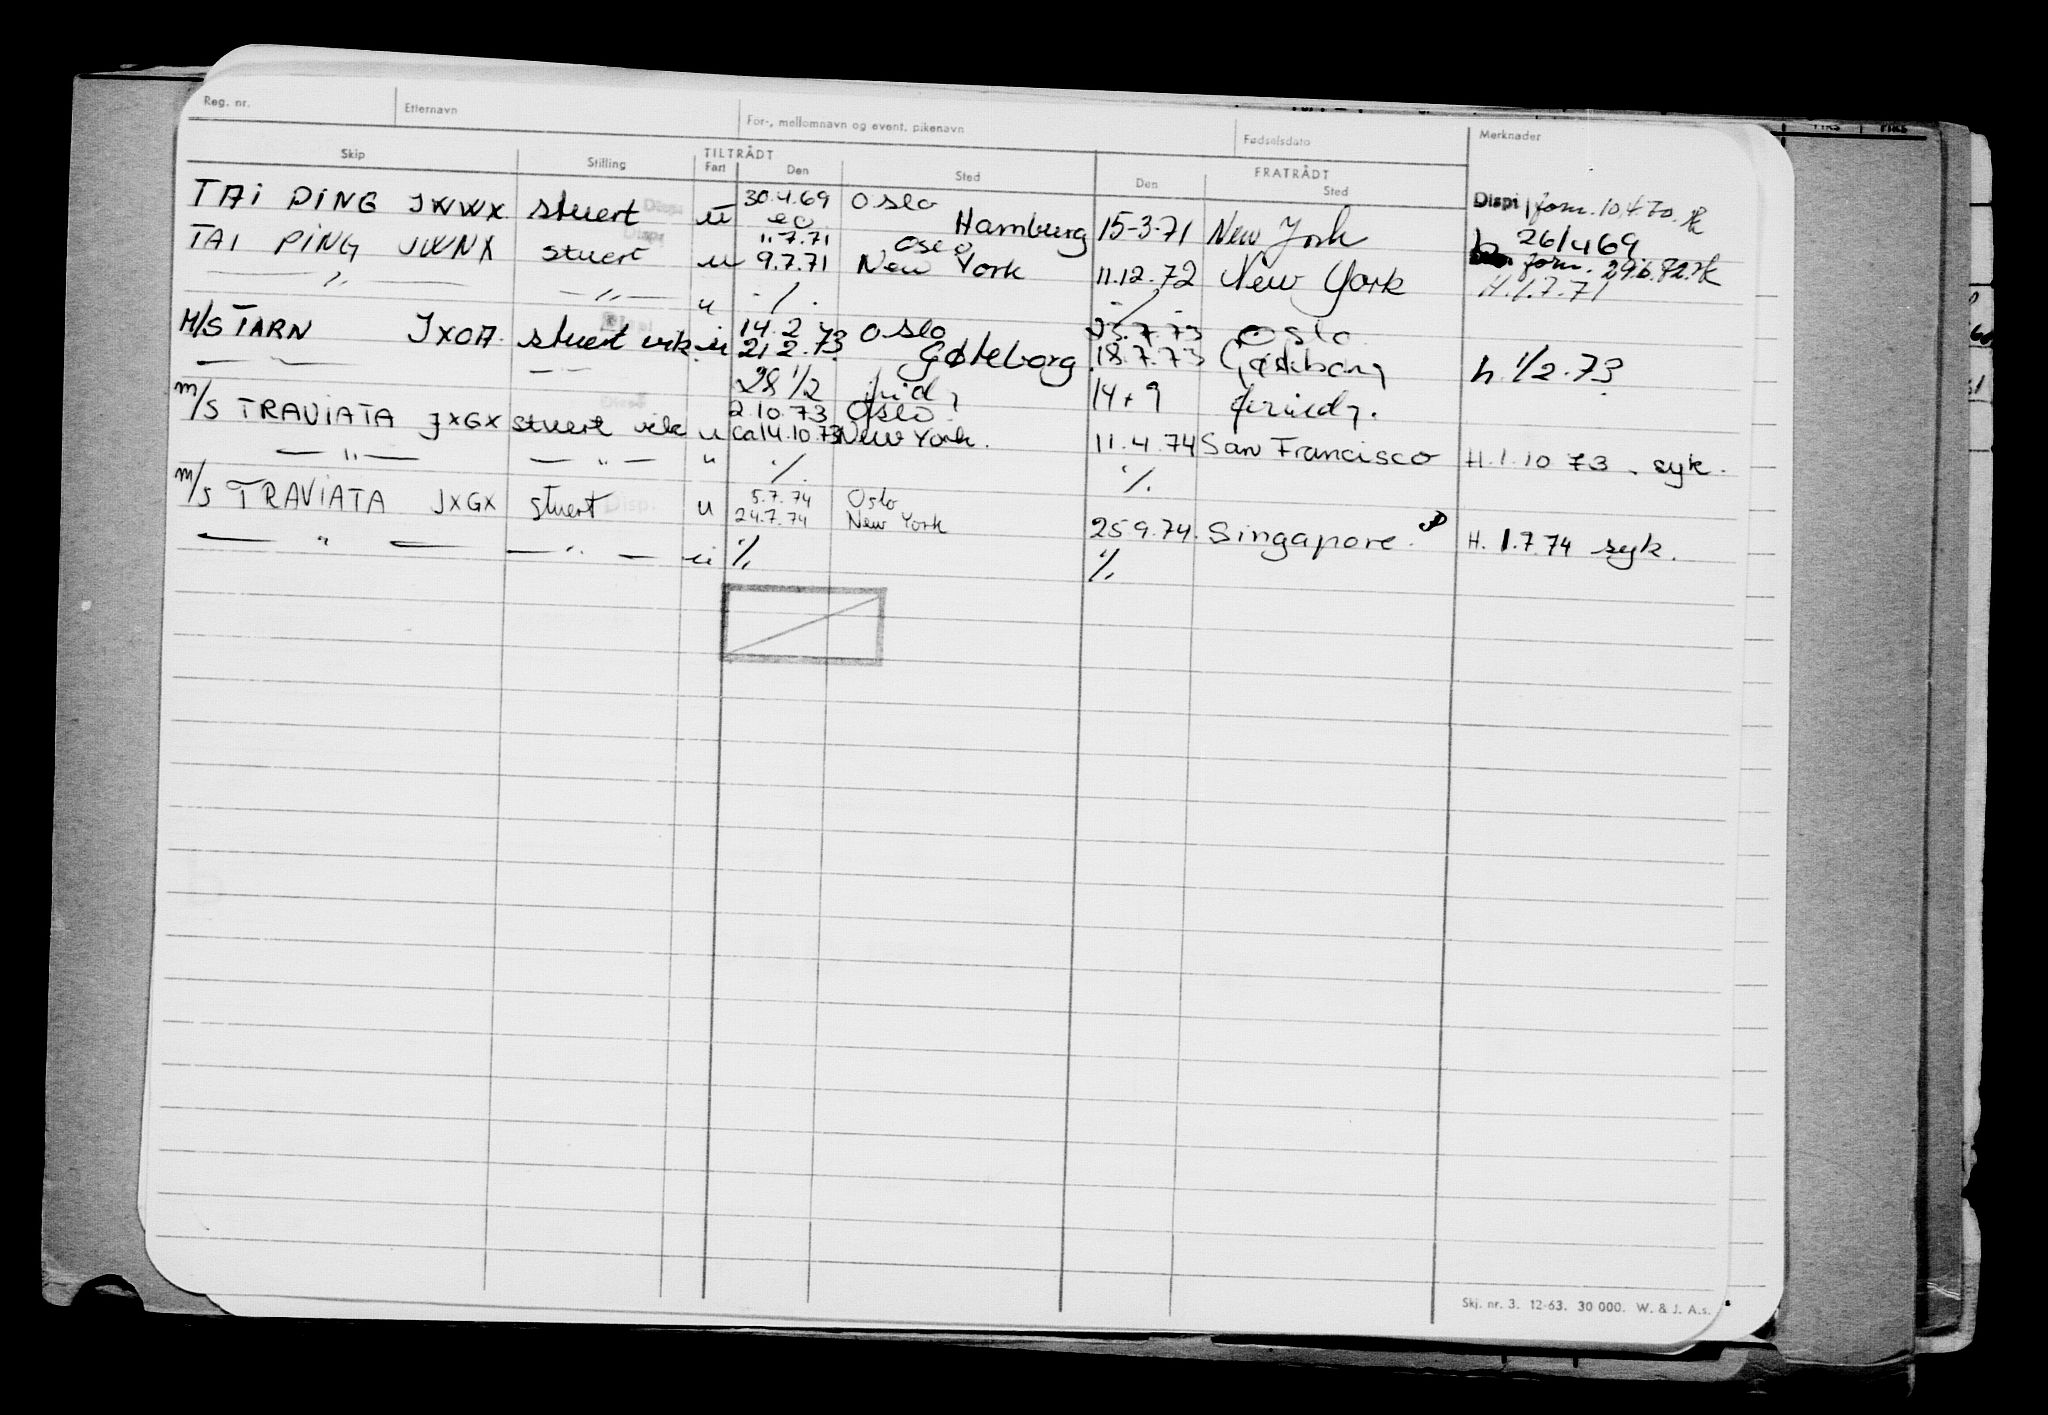 Reg. nr. Etternavn For-, mellomnavn og event. pikenavn Fødselsdato Merknader
Skip Stilling TILTRÅDT Fart Den Sted FRATRÅDT Den Sted
TAI PING JWWX stuert Dispi u 30.4.69 Oslo Dispi form. 10.4.70.
Hamburg 15-3-71 New York h 26/4 69
TAI PING JWNX stuert Dispi u 1.7.71 Oslo
9.7.71 New York 11.12.72 New York form. 29.6.72.
— " — — " — u ./. ./. H.1.7.71
M/S TARN JXOA. stuert vik. u 14.2 Oslo 23.7.73 Oslo
21 2.73 Gøteborg 18.7.73 Gøteborg h. 1/2.73
28 1/2 14+9
m/s TRAVIATA JXGX stuert vik u 2.10.73 Oslo
ca 14.10.73 New York. 11.4.74 San Francisco H.1.10 73. syk.
— " — — " — " ./. ./.
m/s TRAVIATA JXGX stuert Disp. u 5.7.74 Oslo
24.7.74 New York 25 9.74. Singapore. H. 1.7.74 syk.
— " — — " — u ./. ./.
Skj. nr. 3. 12-63. 30 000. W. & J. A.s.